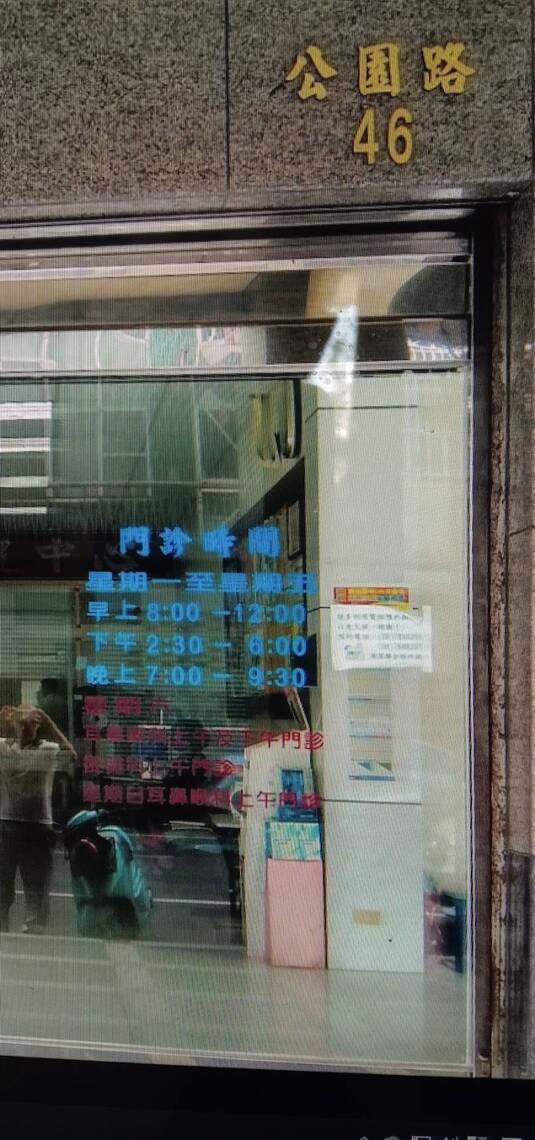 公園路
46
中心
門診時間
星期一至星期五
早上 8:00 - 12:00
下午 2:30 - 6:00
晚上 7:00 - 9:30
星期六
耳鼻喉科上午及下午門診
上午門診
星期日耳鼻喉科上午門診